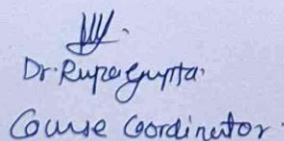 Dr. Rupa Gupta
Course Coordinator